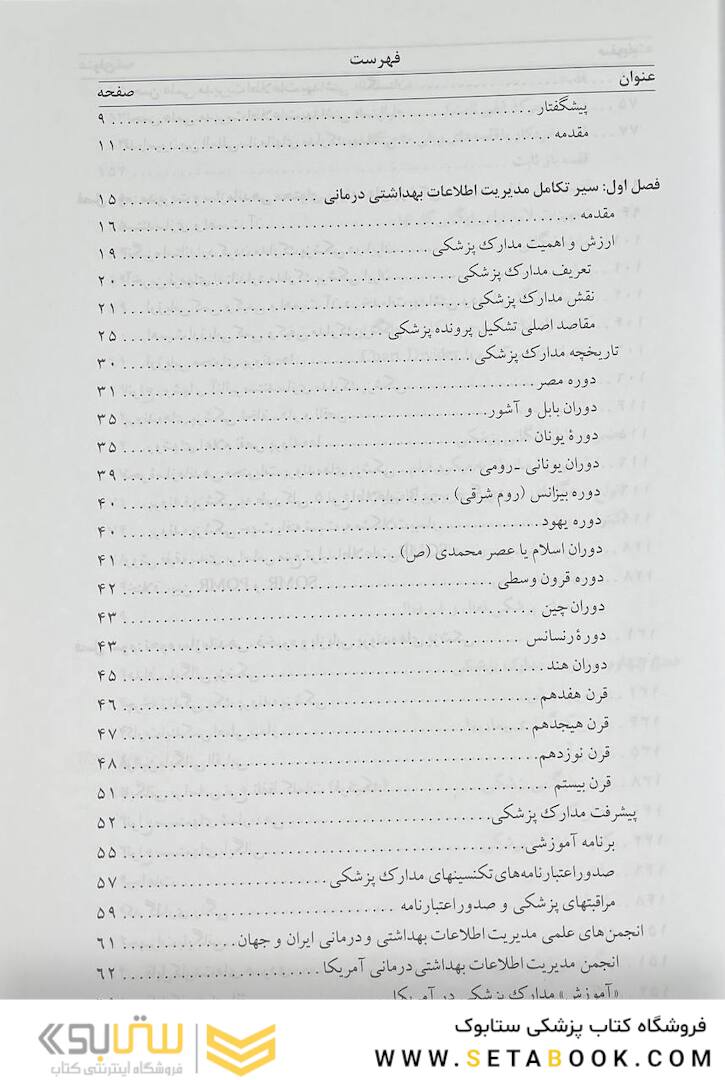 فهرست
عنوان صفحه
پیشگفتار ۹
مقدمه ۱۱
فصل اول: سیر تکامل مدیریت اطلاعات بهداشتی درمانی ۱۵
مقدمه ۱۶
ارزش و اهمیت مدارک پزشکی ۱۹
تعریف مدارک پزشکی ۲۰
نقش مدارک پزشکی ۲۱
مقاصد اصلی تشکیل پرونده پزشکی ۲۵
تاریخچه مدارک پزشکی ۳۰
دوره مصر ۳۱
دوران بابل و آشور ۳۵
دورۀ یونان ۳۵
دوران یونانی ـ رومی ۳۹
دوره بیزانس (روم شرقی) ۴۰
دوره یهود ۴۰
دوران اسلام یا عصر محمدی (ص) ۴۱
دوره قرون وسطی ۴۲
دوران چین ۴۳
دورۀ رنسانس ۴۳
دوران هند ۴۵
قرن هفدهم ۴۶
قرن هیجدهم ۴۷
قرن نوزدهم ۴۸
قرن بیستم ۵۱
پیشرفت مدارک پزشکی ۵۲
برنامه آموزشی ۵۵
صدور اعتبارنامه‌های تکنسینهای مدارک پزشکی ۵۷
مراقبتهای پزشکی و صدور اعتبارنامه ۵۹
انجمن‌های علمی مدیریت اطلاعات بهداشتی و درمانی ایران و جهان ۶۱
انجمن مدیریت اطلاعات بهداشتی درمانی آمریکا ۶۲
«آموزش» مدارک پزشکی در آمریکا
فروشگاه کتاب پزشکی ستابوک
WWW.SETABOOK.COM
ستابوک
فروشگاه اینترنتی کتاب